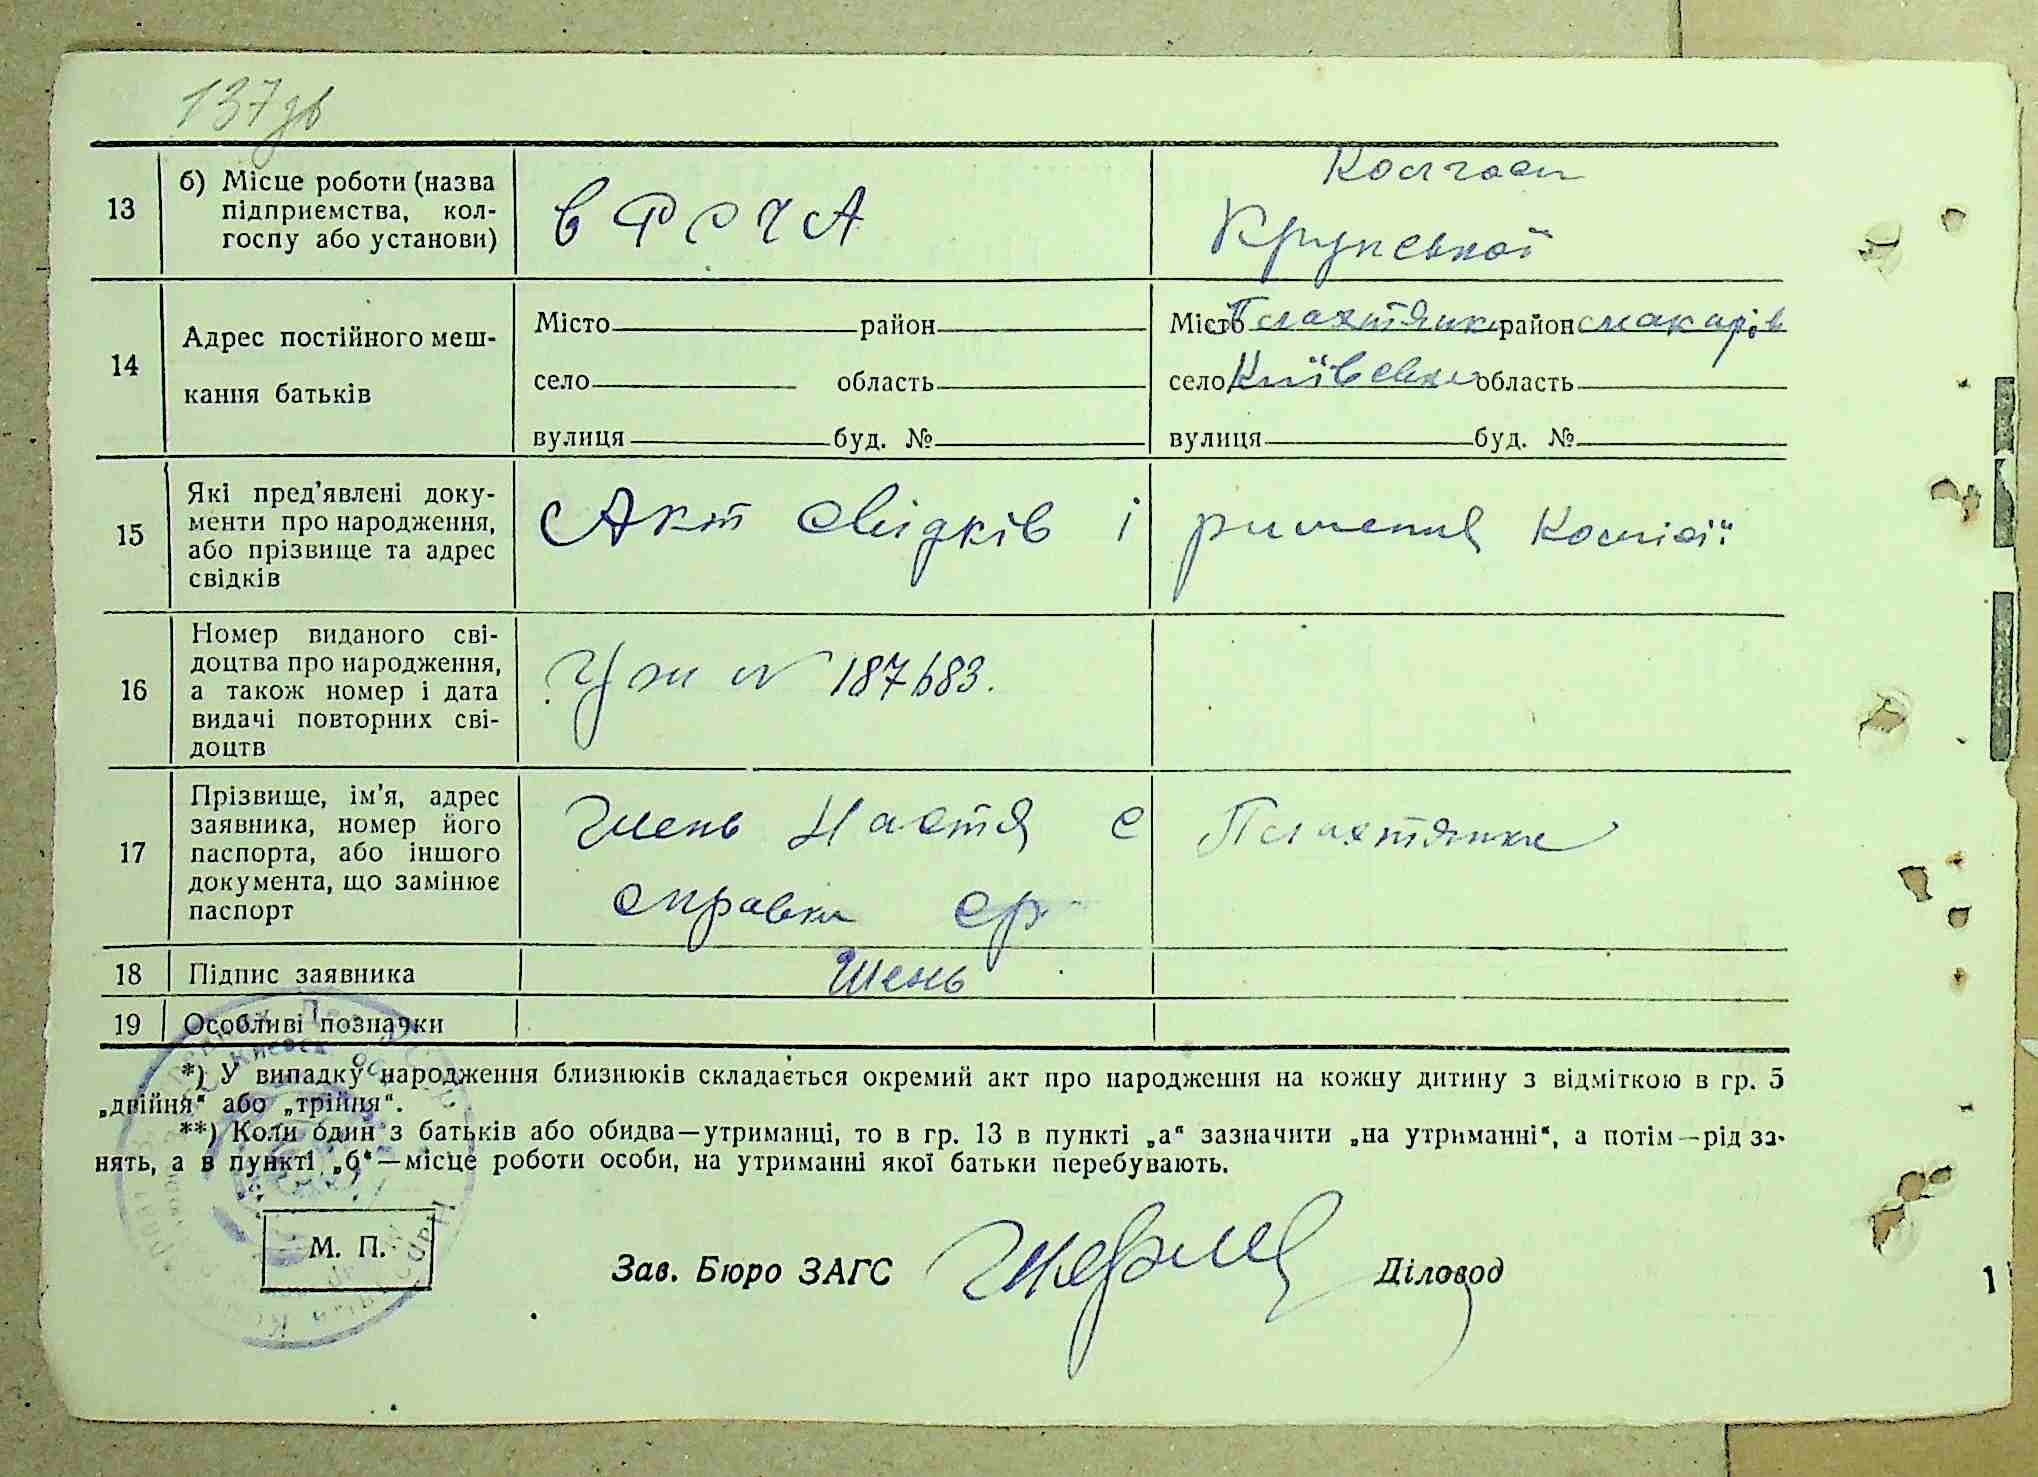 137зв
13
б) Місце роботи (назва
підприємства, кол-
госпу або установи)
в РСЧА
Колгосп
Крупської
14
Адрес постійного меш-
кання батьків
Місто район
село область
вулиця буд. №
Місто Плахтянка район Макарів
село Київська область
вулиця буд. №
15
Які пред'явлені доку-
менти про народження,
або прізвище та адрес
свідків
Акт свідків і ришення Комісії
16
Номер виданого сві-
доцтва про народження,
а також номер і дата
видачі повторних сві-
доцтв
N 187683.
17
Прізвище, ім'я, адрес
заявника, номер його
паспорта, або іншого
документа, що замінює
паспорт
Шень Настя с Плахтянка
справка ср
18
Підпис заявника
Шень
19
Особливі позначки
*) У випадку народження близнюків складається окремий акт про народження на кожну дитину з відміткою в гр. 5
„двійня" або „трійня".
**) Коли один з батьків або обидва—утриманці, то в гр. 13 в пункті „а" зазначити „на утриманні", а потім—рід за-
нять, а в пункті „б"—місце роботи особи, на утриманні якої батьки перебувають.
М. П.
Зав. Бюро ЗАГС
Діловод
1